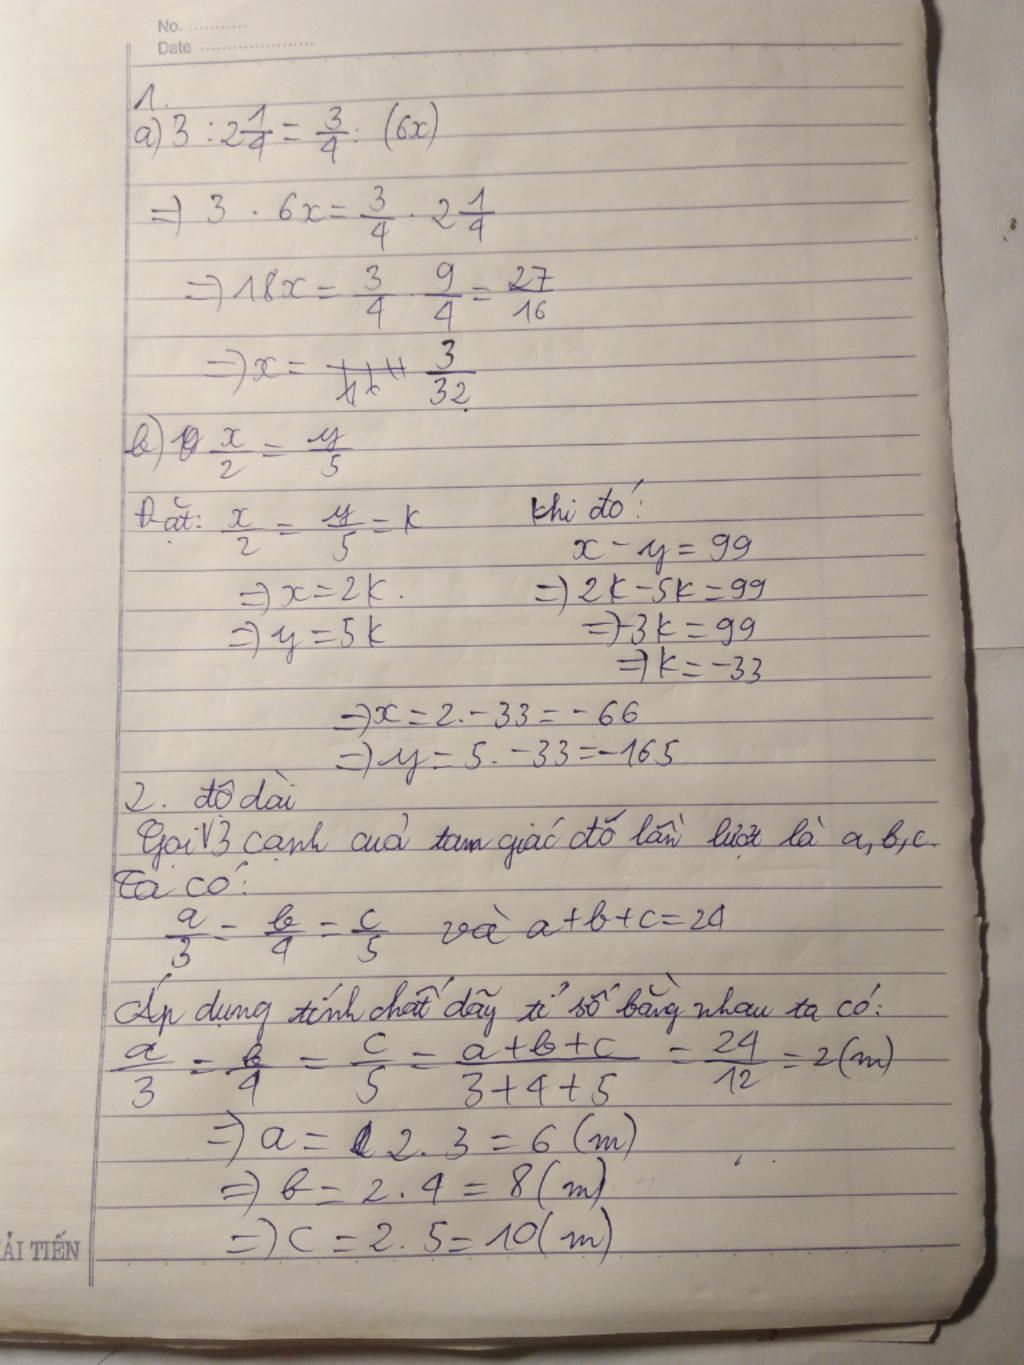 No. ...........
Date ......................
1.
a) 3 : 2 1/4 = 3/4 : (6x)
=> 3 . 6x = 3/4 . 2 1/4
=> 18x = 3/4 . 9/4 = 27/16
=> x = 3/32
b) x/2 = y/5
Đặt: x/2 = y/5 = k
=> x = 2k.
=> y = 5k
Khi đó:
x - y = 99
=> 2k - 5k = 99
=> -3k = 99
=> k = -33
=> x = 2. -33 = -66
=> y = 5. -33 = -165
2. độ dài
Gọi 3 cạnh cuả tam giác đó lần lượt là a, b, c.
Ta có:
a/3 = b/4 = c/5 và a+b+c = 24
Áp dụng tính chất dãy tỉ số bằng nhau ta có:
a/3 = b/4 = c/5 = a+b+c/3+4+5 = 24/12 = 2 (m)
=> a = 2 . 3 = 6 (m)
=> b = 2 . 4 = 8 (m)
=> c = 2 . 5 = 10 (m)
ẢI TIẾN